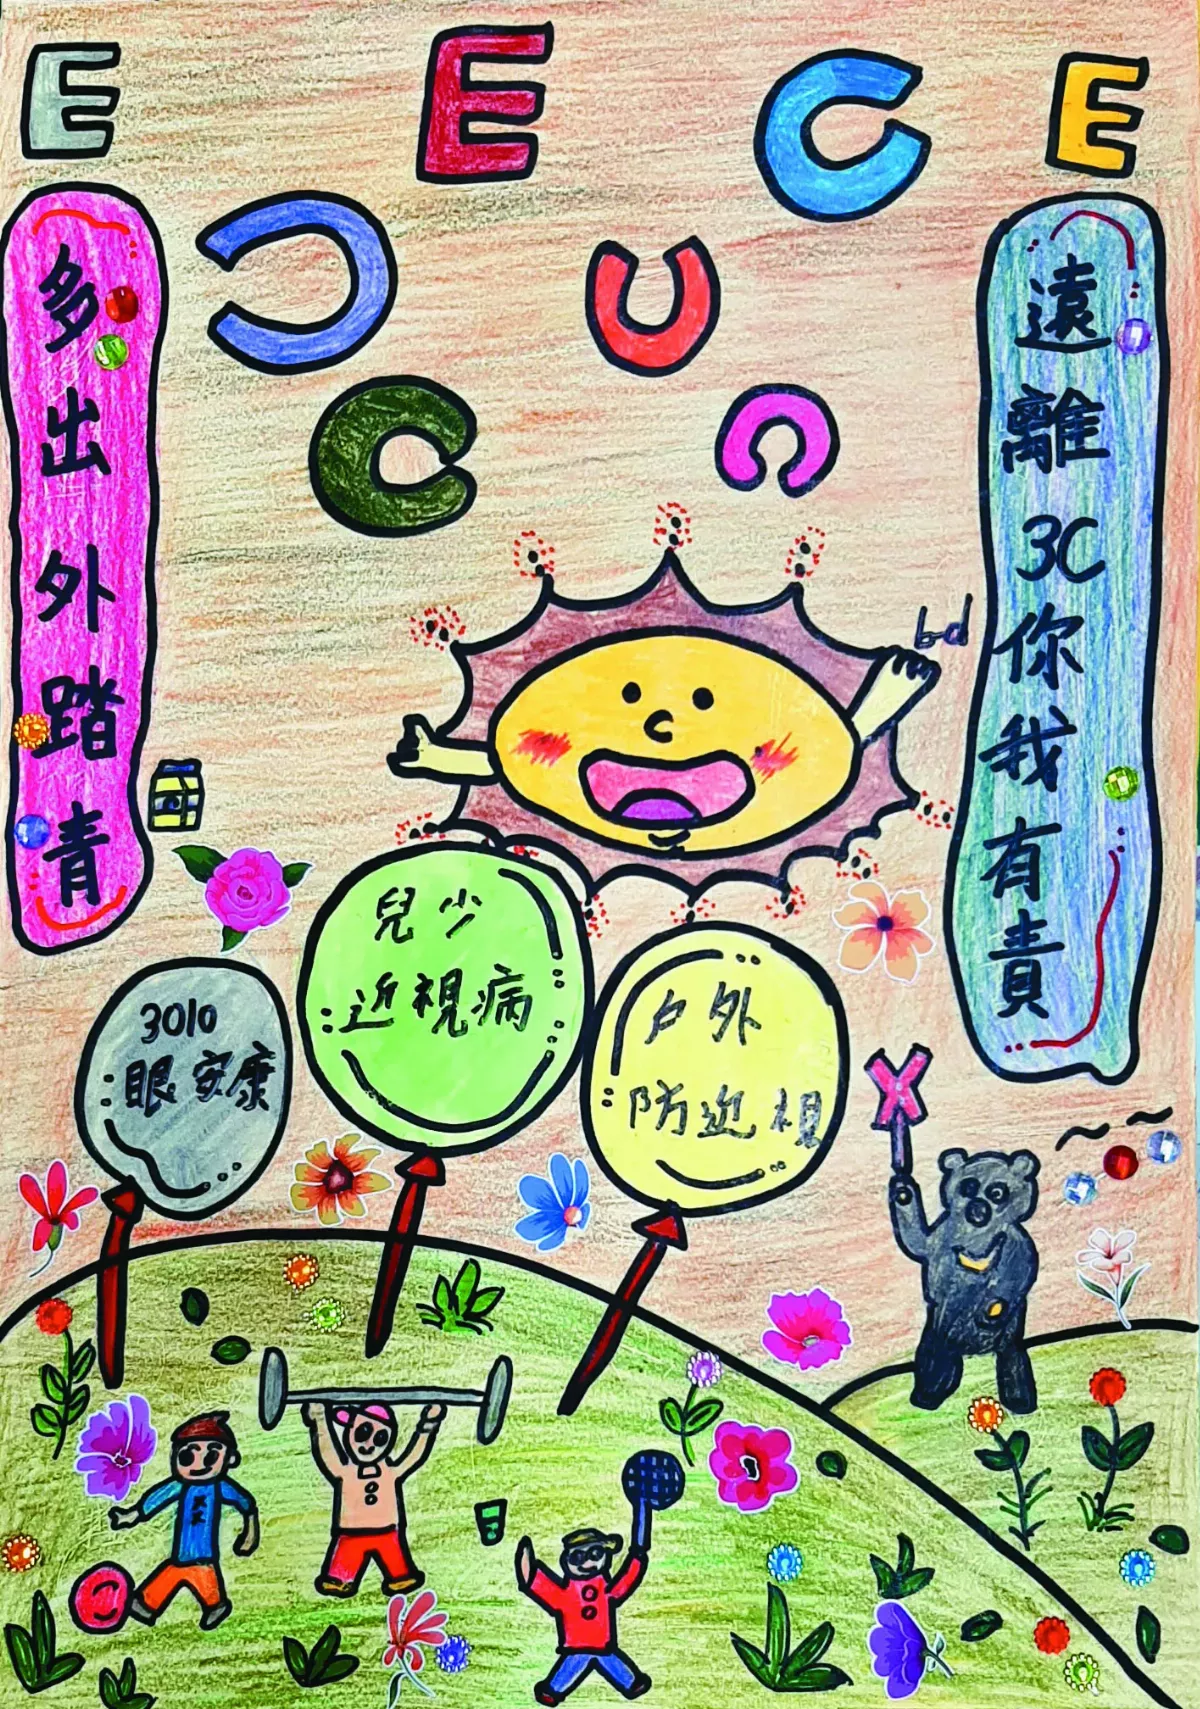 E E C E
C U
C C
多出外踏青
遠離3C你我有責
3010
眼安康
兒少
近視病
戶外
防近視